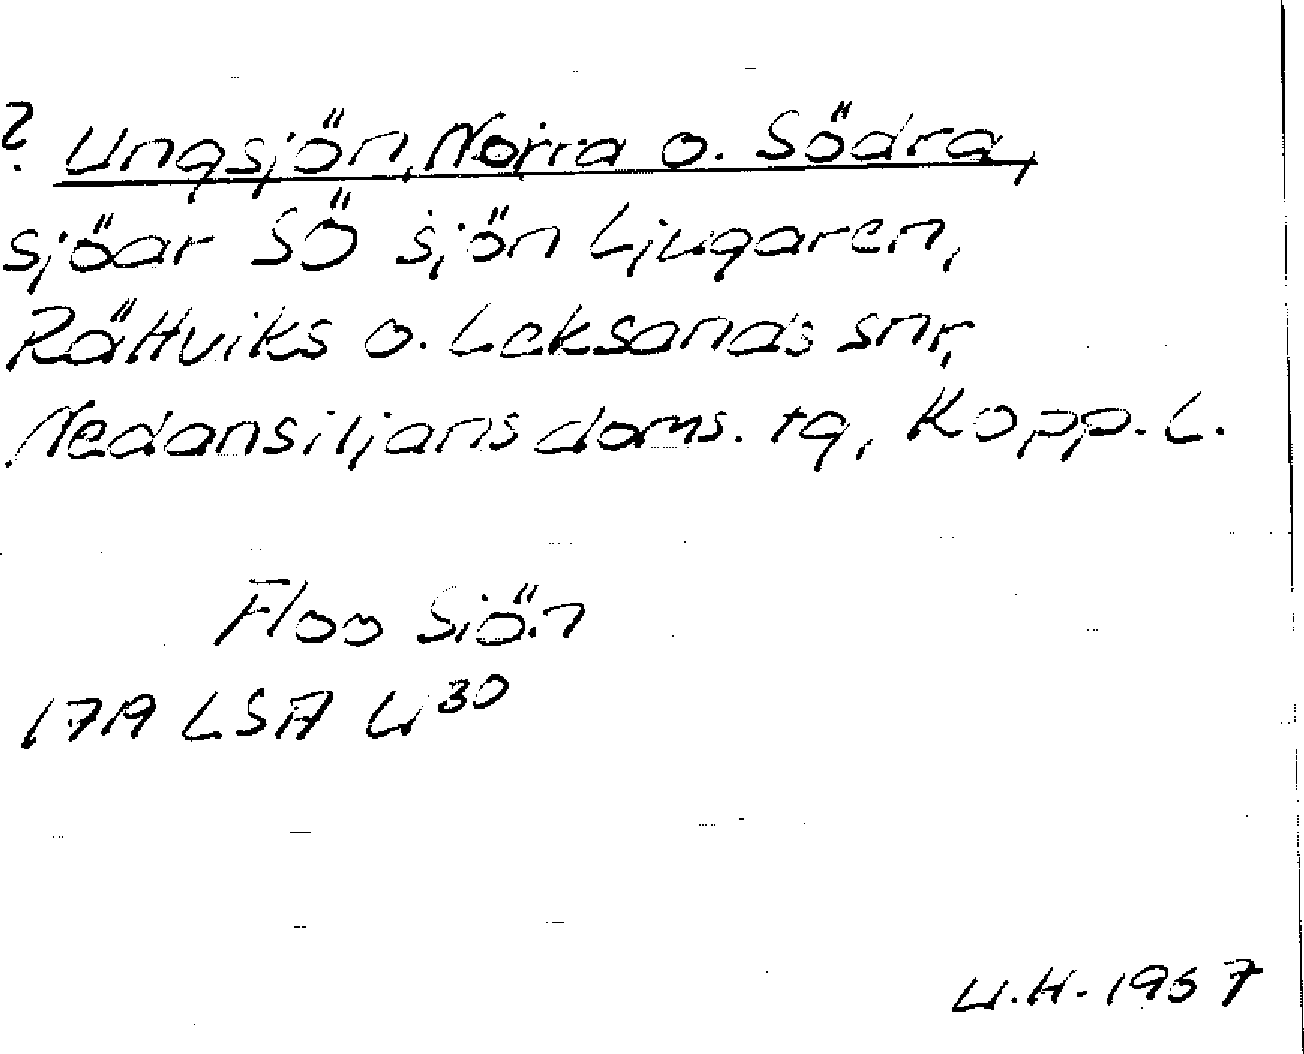 ? Ungsjön, Norra o. Södra,
sjöar SÖ sjön Ljugaren,
Rättviks o. Leksands snr,
Nedansiljans doms. tg, Kopp. L.
Floo Siön
1719 LSA U30
U.H. 1967